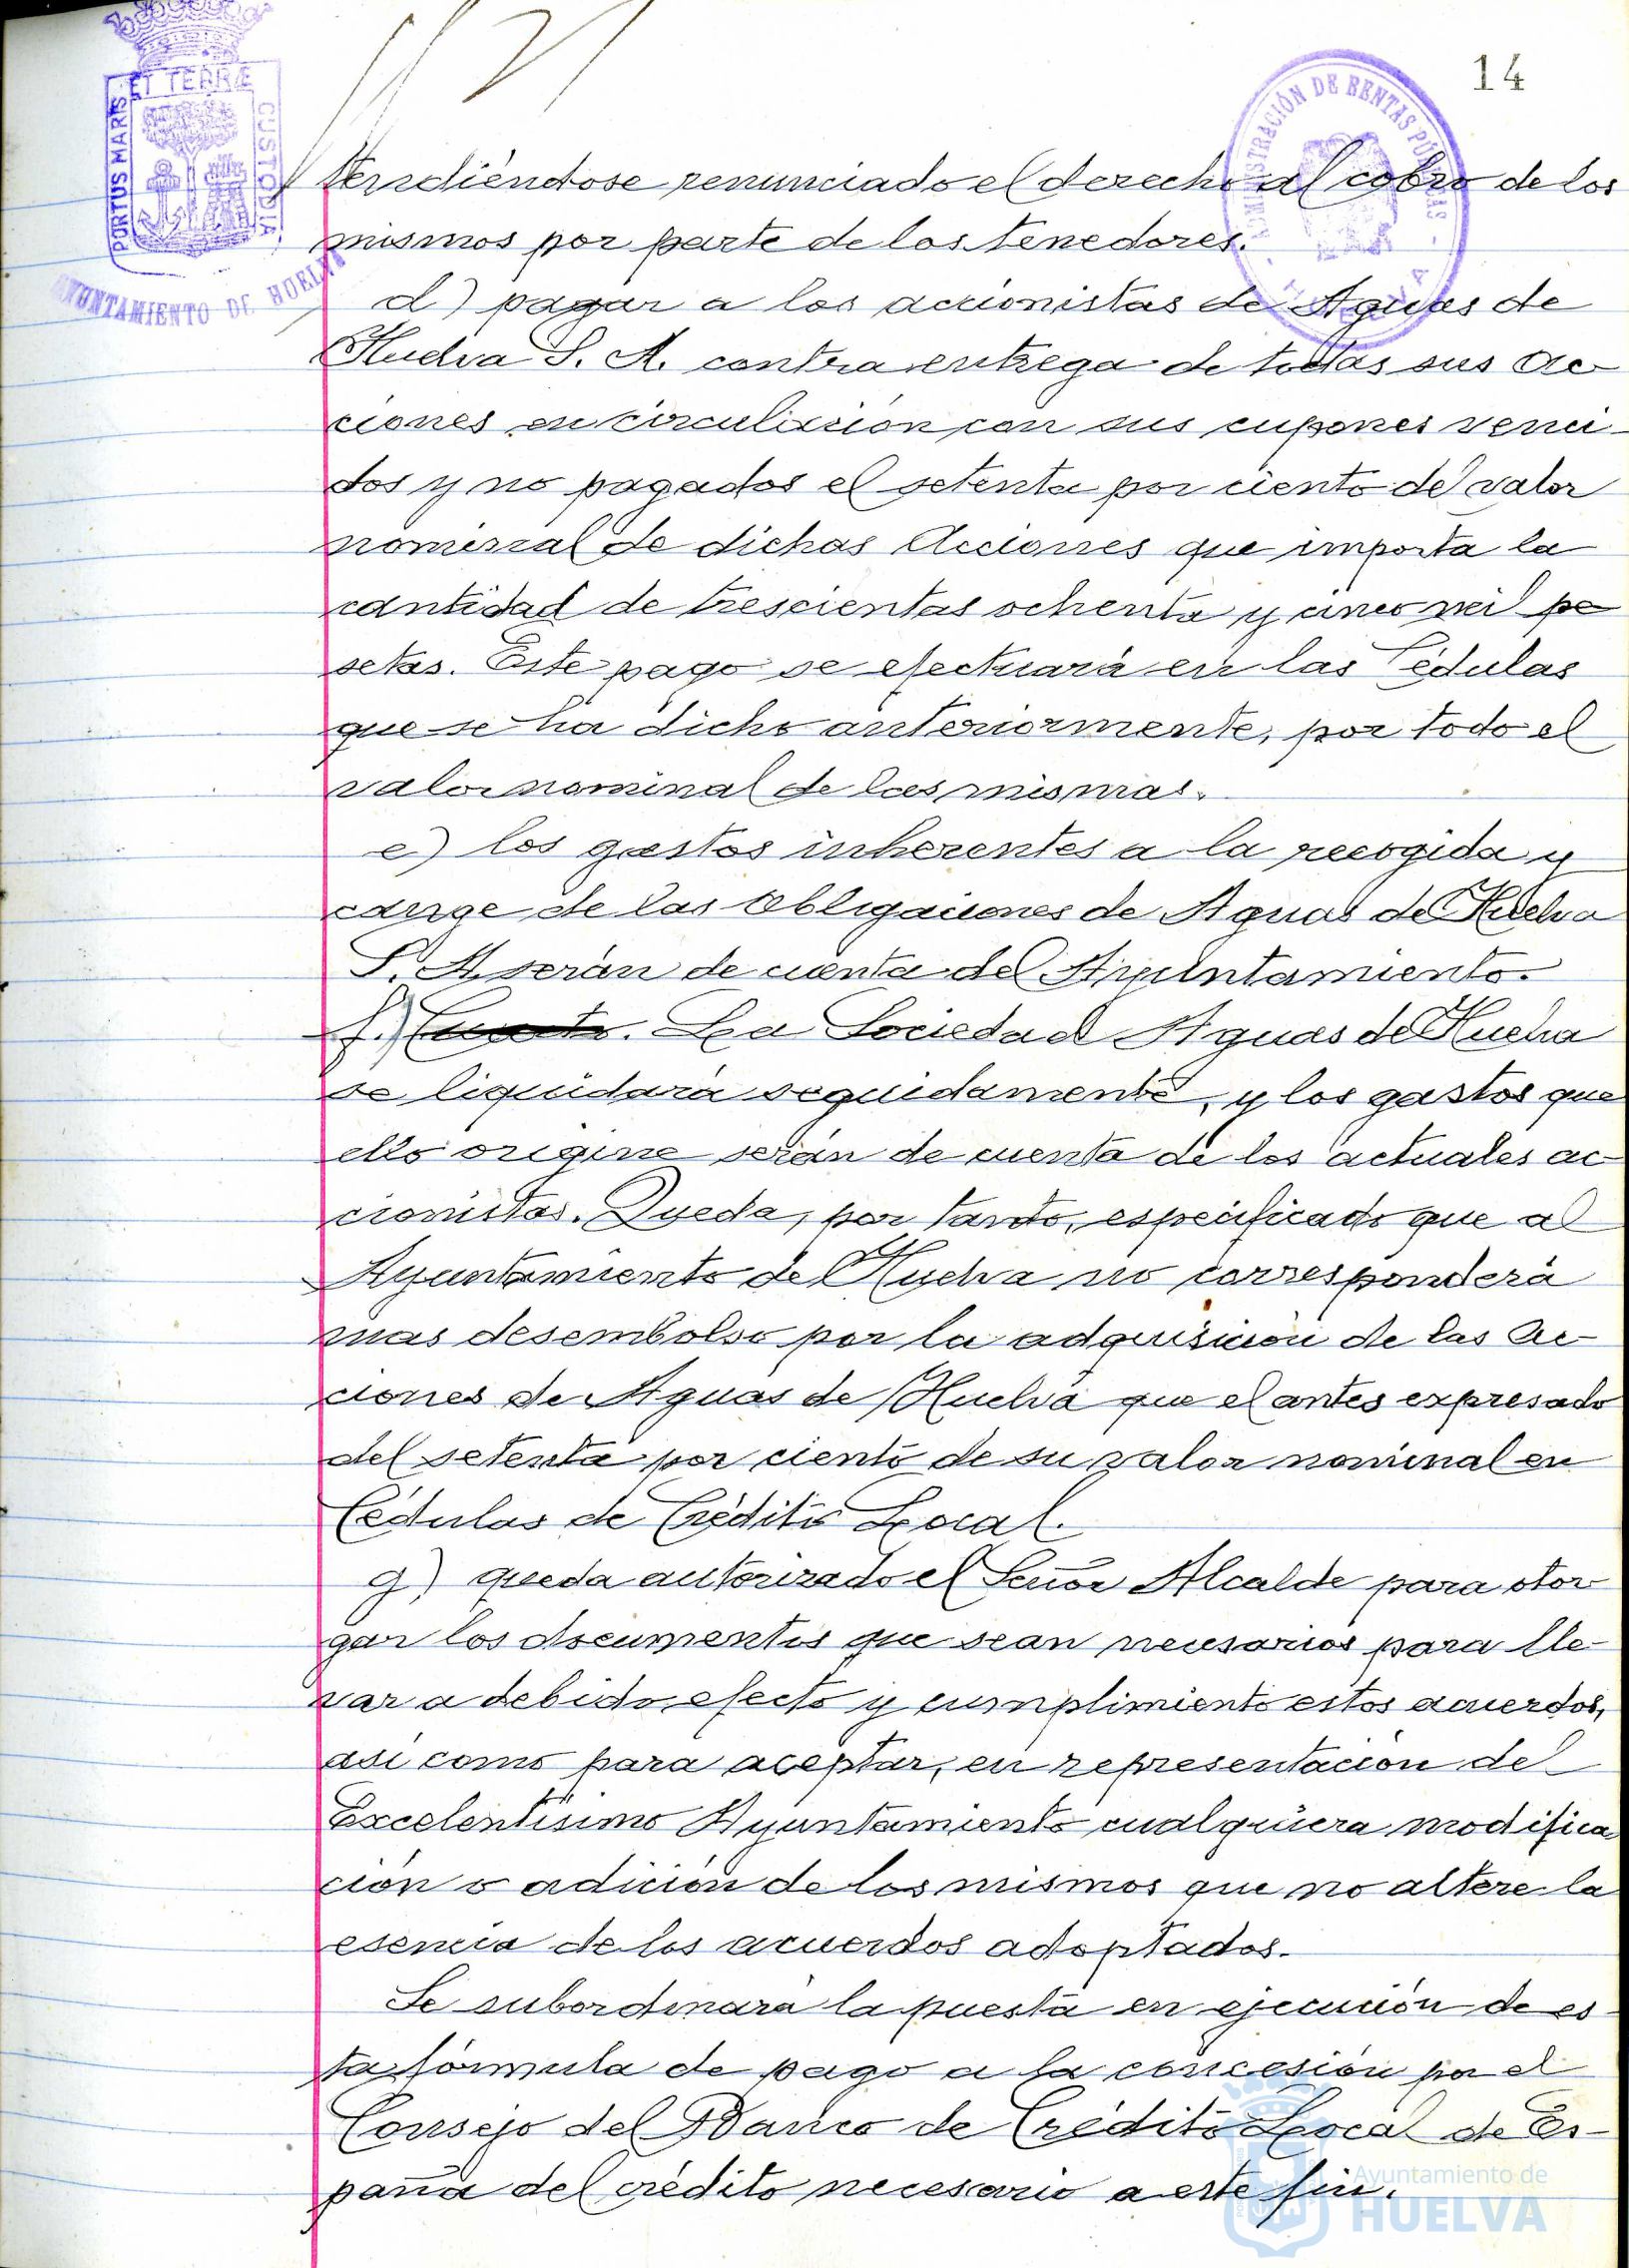 14
PORTUS MARIS ET TERRÆ CUSTODIA
AYUNTAMIENTO DE HUELVA
ADMINISTRACIÓN DE RENTAS PÚBLICAS
tendiéndose renunciado el derecho al cobro de los
mismos por parte de los tenedores.
d) pagar a los accionistas de Aguas de
Huelva S. A. contra entrega de todas sus Ac-
ciones en circulación con sus cupones venci-
dos y no pagados el setenta por ciento del valor
nominal de dichas Acciones que importa la
cantidad de trescientas ochenta y cinco mil pe
setas. Este pago se efectuará en las Cédulas
que se ha dicho anteriormente, por todo el
valor nominal de las mismas.
e) los gastos inherentes a la recogida y
cange de las Obligaciones de Aguas de Huelva
S. A. serán de cuenta del Ayuntamiento.
f.) Cuarto. La Sociedad Aguas de Huelva
se liquidará seguidamente, y los gastos que
ello origine serán de cuenta de los actuales ac-
cionistas. Queda, por tanto, especificado que al
Ayuntamiento de Huelva no corresponderá
mas desembolso por la adquisición de las Ac-
ciones de Aguas de Huelva que el antes expresado
del setenta por ciento de su valor nominal en
Cédulas de Crédito Local.
g) queda autorizado el Señor Alcalde para otor
gar los documentos que sean necesarios para lle-
var a debido efecto y cumplimiento estos acuerdos,
así como para aceptar, en representación del
Excelentísimo Ayuntamiento cualquiera modifica
ción o adición de los mismos que no altere la
esencia de los acuerdos adoptados.
Se subordinará la puesta en ejecución de es-
ta fórmula de pago a la concesión por el
Consejo del Banco de Crédito Local de Es-
paña del crédito necesario a este fin.
Ayuntamiento de
HUELVA